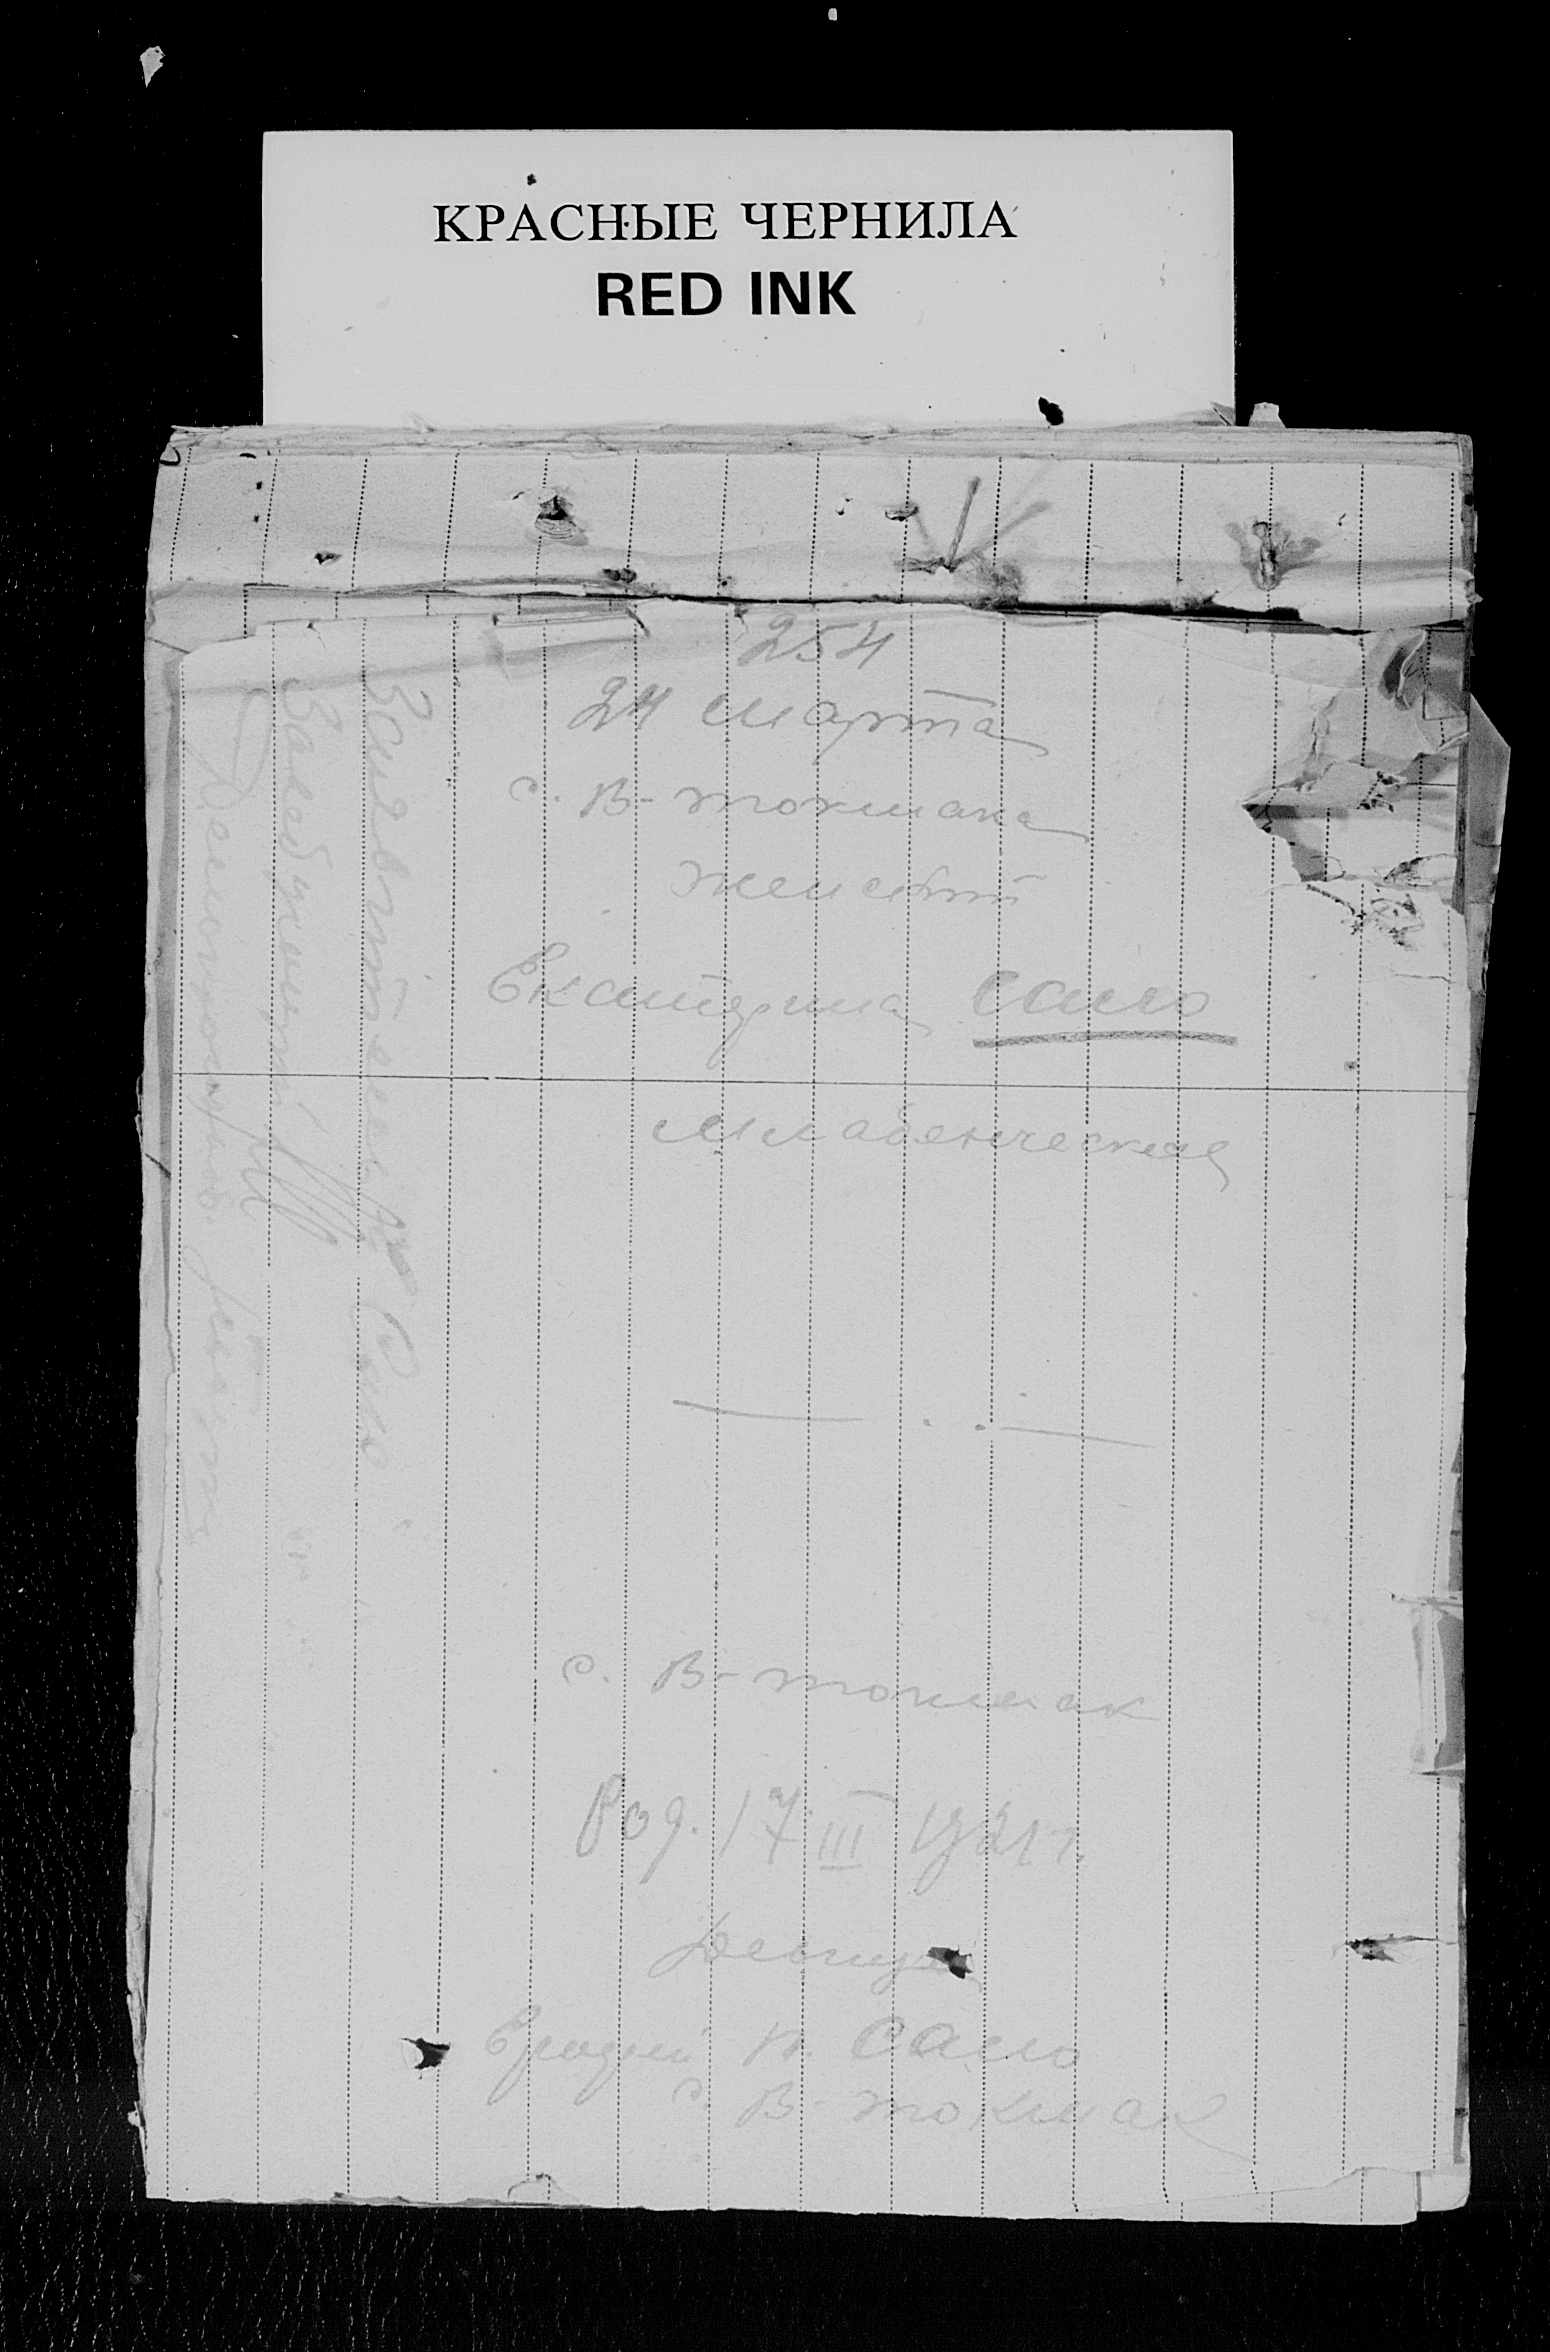 КРАСНЫЕ ЧЕРНИЛА
RED INK
254
24 марта
с. В-токмака
женский
Екатерина Сало
младенческая
с. В-токмак
Род. 17 III 1921 г.
Сало
с. В-токмак
Заявитель Сало
Заведующий